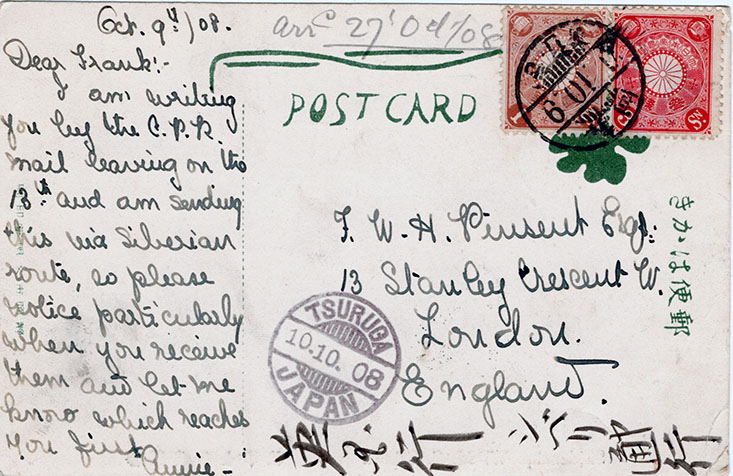 Oct. 9th/08.
arrd 27 Oct/08
Dear Frank:-
I am writing
you by the C.P.R.
mail leaving on the
13th and am sending
this via Siberian
route, so please
notice particularly
when you receive
them and let me
know which reaches
you first
Annie-
POST CARD
1
Sn.
F. W. H. Vinsent Esq:
13 Stanley Crescent W.
London.
England.
きかは便郵
TSURUGA
10.10.08
JAPAN
行
シベリ
行